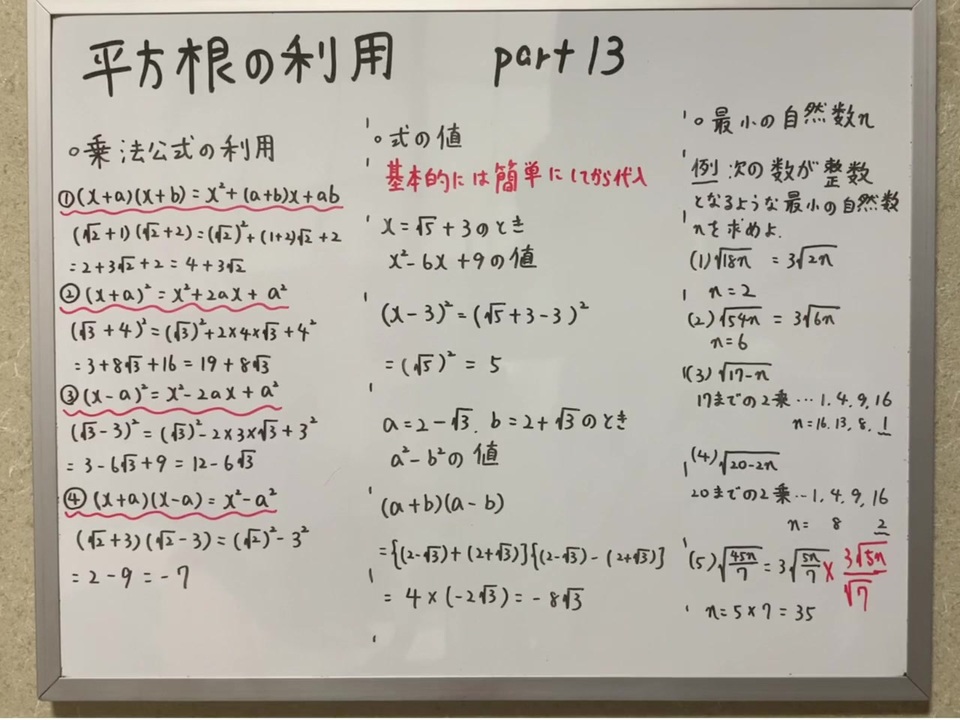 平方根の利用 part 13
○乗法公式の利用
①(x+a)(x+b)=x²+(a+b)x+ab
(√2+1)(√2+2)=(√2)²+(1+2)√2+2
=2+3√2+2=4+3√2
②(x+a)²=x²+2ax+a²
(√3+4)²=(√3)²+2×4×√3+4²
=3+8√3+16=19+8√3
③(x-a)²=x²-2ax+a²
(√3-3)²=(√3)²-2×3×√3+3²
=3-6√3+9=12-6√3
④(x+a)(x-a)=x²-a²
(√2+3)(√2-3)=(√2)²-3²
=2-9=-7
○式の値
基本的には簡単にしてから代入
x=√5+3のとき
x²-6x+9の値
(x-3)²=(√5+3-3)²
=(√5)²=5
a=2-√3. b=2+√3のとき
a²-b²の値
(a+b)(a-b)
={(2-√3)+(2+√3)}{(2-√3)-(2+√3)}
=4×(-2√3)=-8√3
○最小の自然数n
例 次の数が整数
となるような最小の自然数
nを求めよ.
(1)√18n =3√2n
n=2
(2)√54n =3√6n
n=6
(3)√17-n
17までの2乗…1.4.9.16
n=16.13.8.1
(4)√20-2n
20までの2乗…1.4.9.16
n= 8 2
(5)√45n/7=3√5n/7 × 3√5n/√7
n=5×7=35